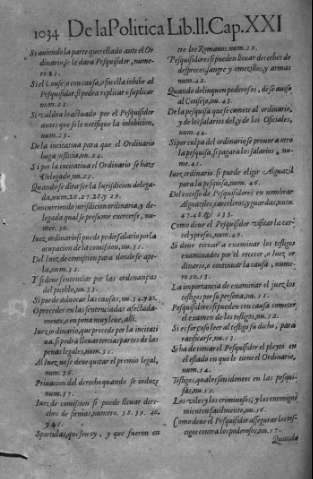 1034 De la Politica Lib. II. Cap. XXI
Si auiendo la parte querellado ante el Or-
dinario, se le dara Pesquisidor, nume-
ro 21.
Si el
sidor, si podra replicar o suplicar
num. 22.
Si valdra lo actuado por el Pesquisidor
antes que se le notifique la inhibicion,
num. 23.
De la incitatiua para que el Ordinario
haga justicia, nu. 24.
Si por la incitatiua el Ordinario se haze
Delegado, nu. 25.
Quando se dira ser la Iurisdicion delega-
da, num. 26. 27. 28. y 29.
Concurriendo jurisdicion ordinaria, y de-
legada qual se presume exercerse, nu-
mer. 30.
Iuez ordinario si puede pedir salario por la
ocupacion de la comission, nu. 31.
Del Iuez de comission para donde se ape-
la, num. 32.
Y si deue sentenciar por las ordenanças
del pueblo, nu. 33.
Si puede aduocar las causas, nu. 34. y 35.
O proceder en las sentenciadas
mente, o en pena muy leue, alli.
Iuez ordinario, que procede por la incitati
ua, si podra lleuar tercias partes de las
penas legales, num. 36.
Al Iuez no se deue quitar el premio legal,
num.
Priuacion del derecho quando se induze
num. 37.
Iuez de comission si puede lleuar dere-
chos de firmas, numero. 38. 39. 40.
y 41.
Sportulas, que son, y que fueron en
tre los Romanos, num. 41.
Pesquisidores si pueden lleuar derechos de
desprezes, sangre y omezillos, y armas
num. 42.
Quando delinquen poderosos, de se auiso
al Consejo, nu. 43.
De la pesquisa que se comete al ordinario,
y de los salarios del y de los Oficiales,
num. 44.
Si por culpa del ordinario se prouee a otro
la pesquisa, si pagara los salarios, nu-
me. 45.
Iuez ordinario, si puede eligir Alguazil
para la pesquisa, num. 46.
Del excesso de Pesquisidores en nombrar
Alguaziles, fiscales, y guardas, num.
47. 48. y 133.
Como deue el Pesquisidor visitar la car-
cel y presos, num. 49.
Si deue tornar a examinar los testigos
examinados por el receptor, o Iuez or
dinario, o continuar la causa, nume-
ro 50.
La importancia de examinar el juez los
testigos por su persona, nu. 51.
Pesquisidores si pueden con causa cometer
el examen de los testigos, nu. 52.
Si es forçoso leer al testigo su dicho, para
ratificarse, nu. 53.
Si ha de tomar el Pesquisidor el pleyto en
el estado en que le tiene el Ordinario,
num. 54.
Testigos, quales sean idoneos en las pesqui-
sas, nu. 55.
Los viles y los criminosos, y los enemigos
mienten facilmente, nu. 56.
Como deue el Pesquisidor assegurar los tes-
tigos contra los poderosos, nu. 57.
Quando